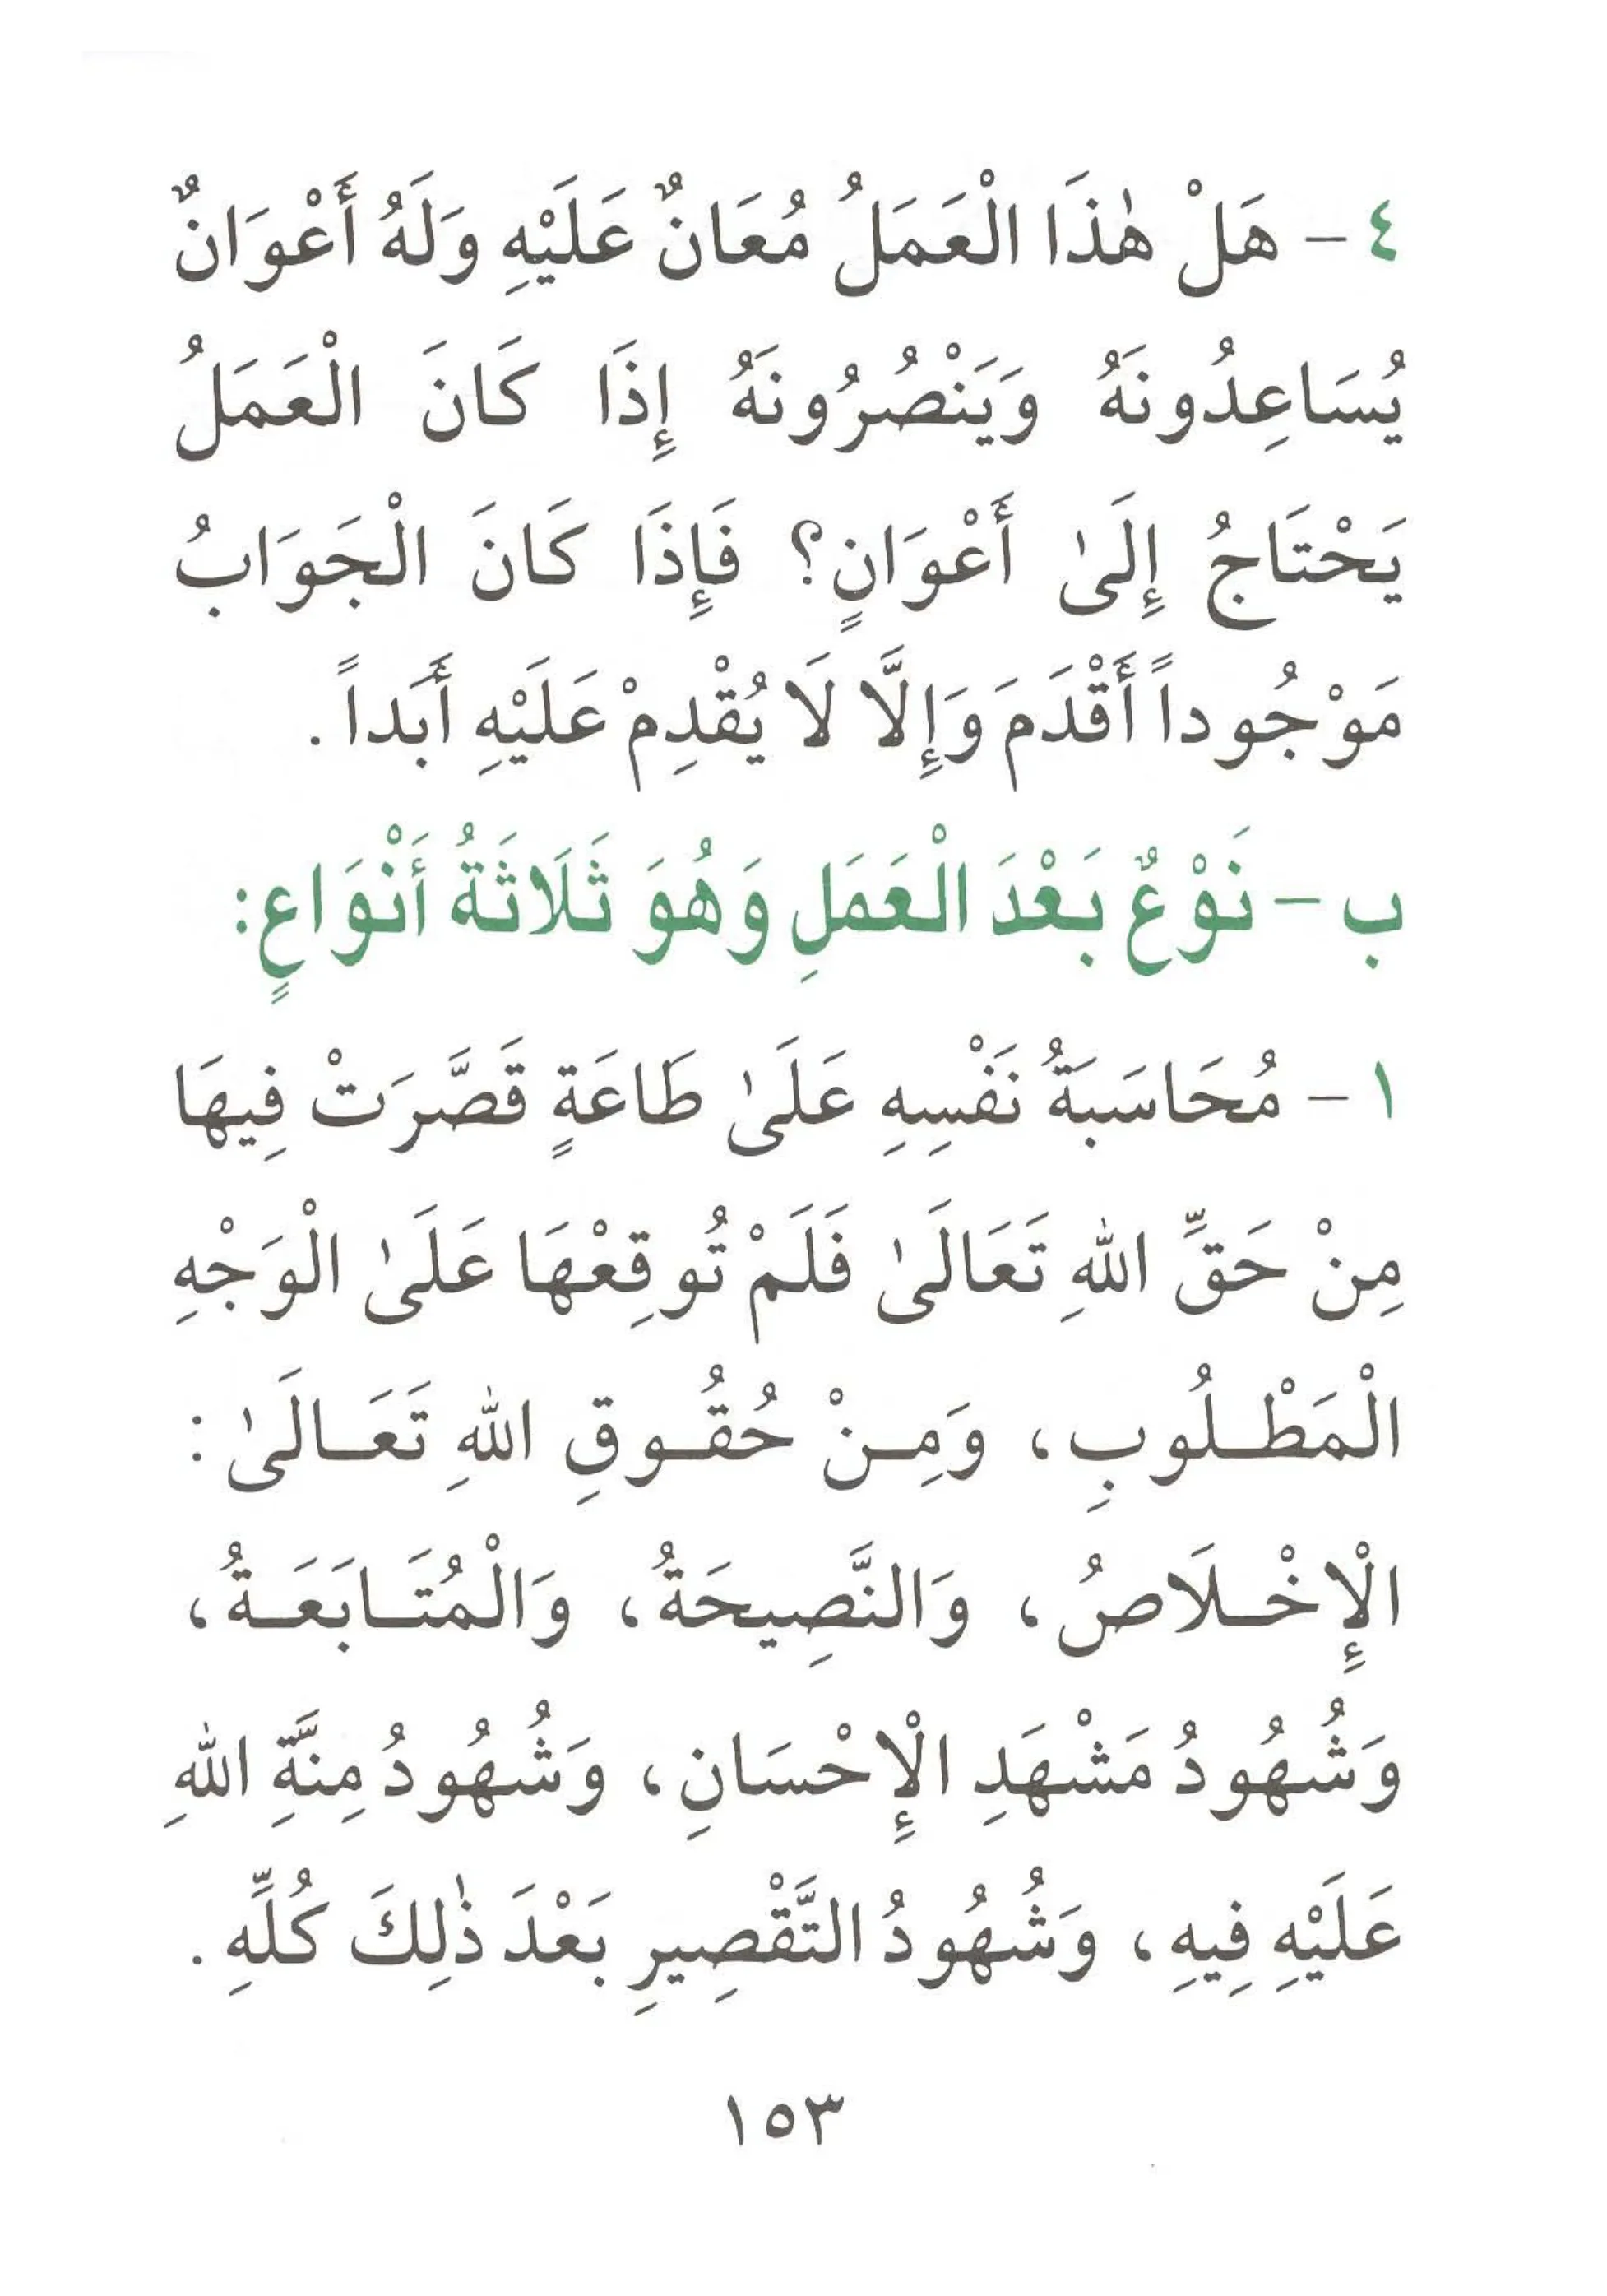 ٤ - هَلْ هٰذَا الْعَمَلُ مُعَانٌ عَلَيْهِ وَلَهُ أَعْوَانٌ
يُسَاعِدُونَهُ وَيَنْصُرُونَهُ إِذَا كَانَ الْعَمَلُ
يَحْتَاجُ إِلَىٰ أَعْوَانٍ؟ فَإِذَا كَانَ الْجَوَابُ
مَوْجُوداً أَقْدَمَ وَإِلَّا لَا يُقْدِمْ عَلَيْهِ أَبَداً.
ب - نَوْعٌ بَعْدَ الْعَمَلِ وَهُوَ ثَلَاثَةُ أَنْوَاعٍ:
١ - مُحَاسَبَةُ نَفْسِهِ عَلَىٰ طَاعَةٍ قَصَّرَتْ فِيهَا
مِنْ حَقِّ اللهِ تَعَالَىٰ فَلَمْ تُوقِعْهَا عَلَىٰ الْوَجْهِ
الْمَطْلُوبِ، وَمِنْ حُقُوقِ اللهِ تَعَالَىٰ:
الْإِخْلَاصُ، وَالنَّصِيحَةُ، وَالْمُتَابَعَةُ،
وَشُهُودُ مَشْهَدِ الْإِحْسَانِ، وَشُهُودُ مِنَّةِ اللهِ
عَلَيْهِ فِيهِ، وَشُهُودُ التَّقْصِيرِ بَعْدَ ذٰلِكَ كُلِّهِ.
١٥٣